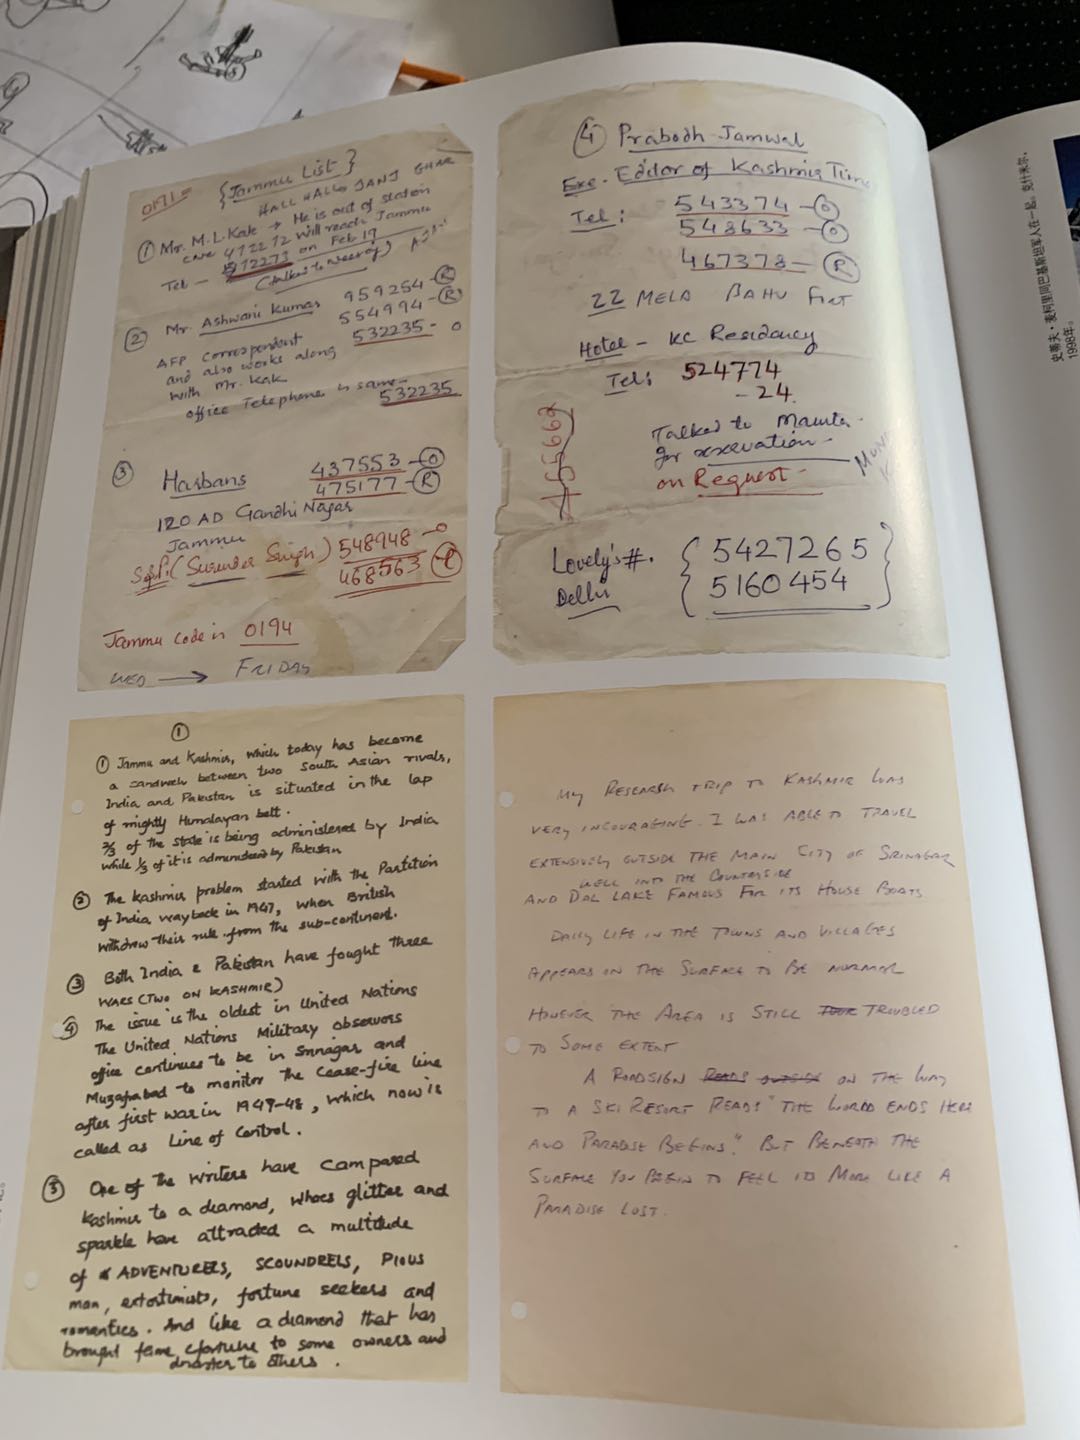 0191=
{Jammu List}
HALL HALLS JANJ GHAR
① Mr. M.L. Kak → He is out of station
472272 Will reach Jammu
Tel - 472273 on Feb 19
(talked to Neeraj)
② Mr. Ashwani Kumar 959254-Ⓡ
554994-Ⓡ
AFP Correspondent 532235- O
and also works along
with Mr. Kak
office Telephone is same-
532235
③ Harbans 437553-Ⓞ
475177-Ⓡ
120 AD Gandhi Nagar
Jammu
(Surinder Singh) 548948-O
468563
Jammu Code is 0194
WED → FRIDAY
④ Prabodh Jamwal
Exe. Editor of Kashmir Times
Tel: 543374-Ⓞ
543633-Ⓞ
467378-Ⓡ
22 MELA BAHU FORT
Hotel - KC Residency
Tel: 524774
-24
Talked to Mamta-
for reservation-
on Request-
455662
Lovely's #. { 5427265
Delhi 5160454 }
①
① Jammu and Kashmir, which today has become
a sandwich between two South Asian rivals,
India and Pakistan is situated in the lap
of mightly Humalayan belt.
⅔ of the state is being administered by India
while ⅓ of it is administered by Pakistan
② The Kashmir problem started with the Partition
of India, way back in 1947, when British
withdrew their rule from the sub-continent.
③ Both India & Pakistan have fought three
WARS (TWO ON KASHMIR)
④ The issue is the oldest in United Nations
The United Nations Military observers
office continues to be in Srinagar and
Muzafrabad to monitor the Cease-fire line
after first war in 1947-48, which now is
called as Line of Control.
⑤ One of the writers have compared
Kashmir to a diamond, whoes glitter and
sparkle have attracted a multitude
of ADVENTURERS, SCOUNDRELS, PIOUS
man, extortionists, fortune seekers and
romantics. And like a diamond that has
brought fame, fortune to some owners and
disaster to others.
MY RESEARSH TRIP TO KASHMIR WAS
VERY INCOURAGING. I WAS ABLE TO TRAVEL
EXTENSIVELY OUTSIDE THE MAIN CITY OF SRINAGAR
WELL INTO THE COUNTRYSIDE
AND DAL LAKE FAMOUS FOR ITS HOUSE BOATS
DAILY LIFE IN THE TOWNS AND VILLAGES
APPEARS ON THE SURFACE TO BE NORMAL
HOWEVER THE AREA IS STILL TROUBLED
TO SOME EXTENT
A ROADSIGN READS OUTSIDE ON THE WAY
TO A SKI RESORT READS "THE WORLD ENDS HERE
AND PARADISE BEGINS." BUT BENEATH THE
SURFACE YOU BEGIN TO FEEL ITS MORE LIKE A
PARADISE LOST.
史蒂夫·麦柯里同巴基斯坦军人在一起。克什米尔。
1998年。